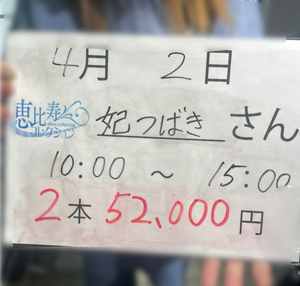 4月 2日
恵比寿
妃つばき さん
10:00 ~ 15:00
2本 52,000円